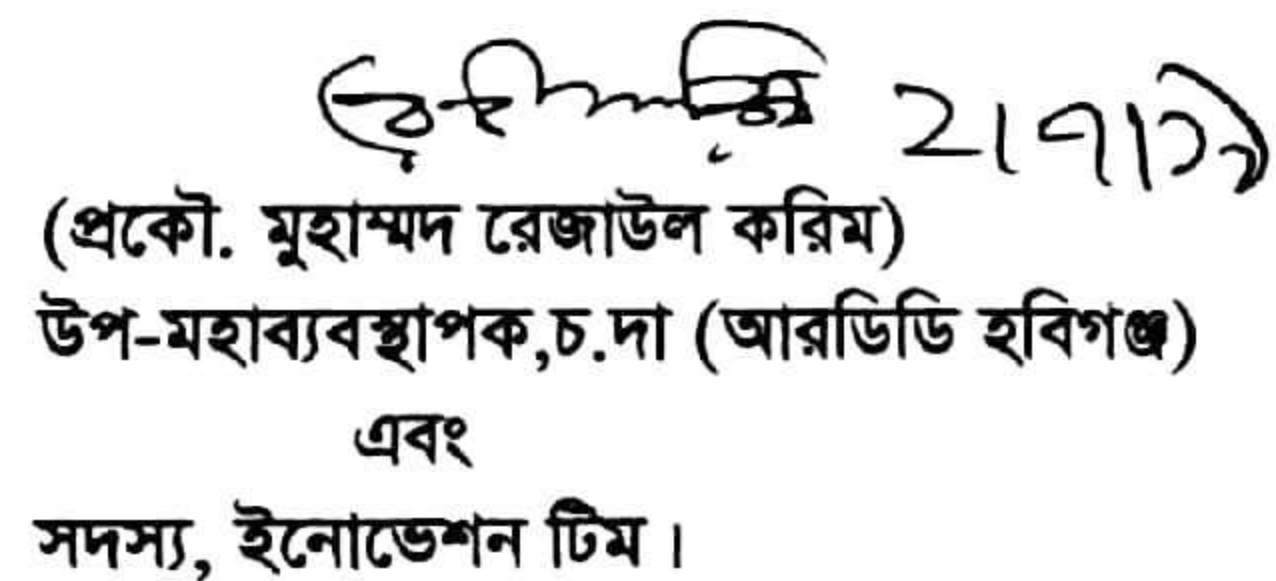 (প্রকৌ. মুহাম্মদ রেজাউল করিম)
উপ-মহাব্যবস্থাপক,চ.দা (আরডিডি হবিগঞ্জ)
এবং
সদস্য, ইনোভেশন টিম।